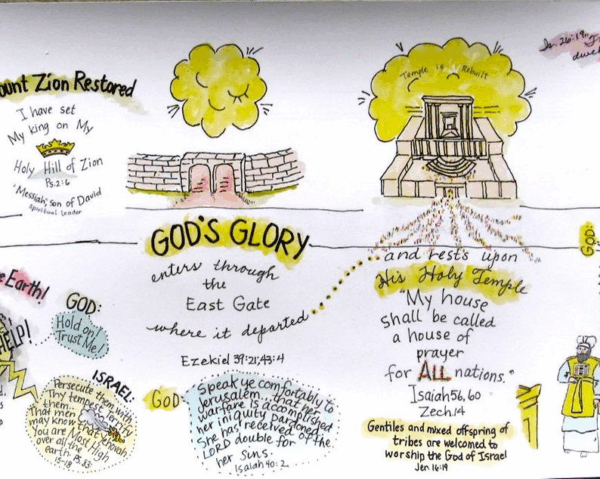 ount Zion Restored
I have set
My king on My
Holy Hill of Zion
Ps. 2:6
"Messiah, son of David
spiritual leader
Temple is Rebuilt
GOD'S GLORY
enters through
the
East Gate
where it departed
Ezekiel 39:21; 43:4
and rests upon
His Holy Temple
"My house
shall be called
a house of
prayer
for ALL nations."
Isaiah 56, 60
Zech. 14
Gentiles and mixed offspring of
tribes are welcomed to
worship the God of Israel
Jer. 16:19
GOD:
e Earth!
HELP!
GOD:
Hold on!
Trust Me!
ISRAEL:
Persecute them with
Thy tempest
them...
That men
may know that
You are Most High
over all the
earth. Ps. 83:
15-18
GOD:
Speak ye comfortably to
Jerusalem, that her
warfare is accomplished
her iniquity pardoned.
She has received of the
LORD double for
her sins.
Isaiah 40:2